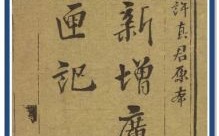 許真君原本
新增廣
匣記